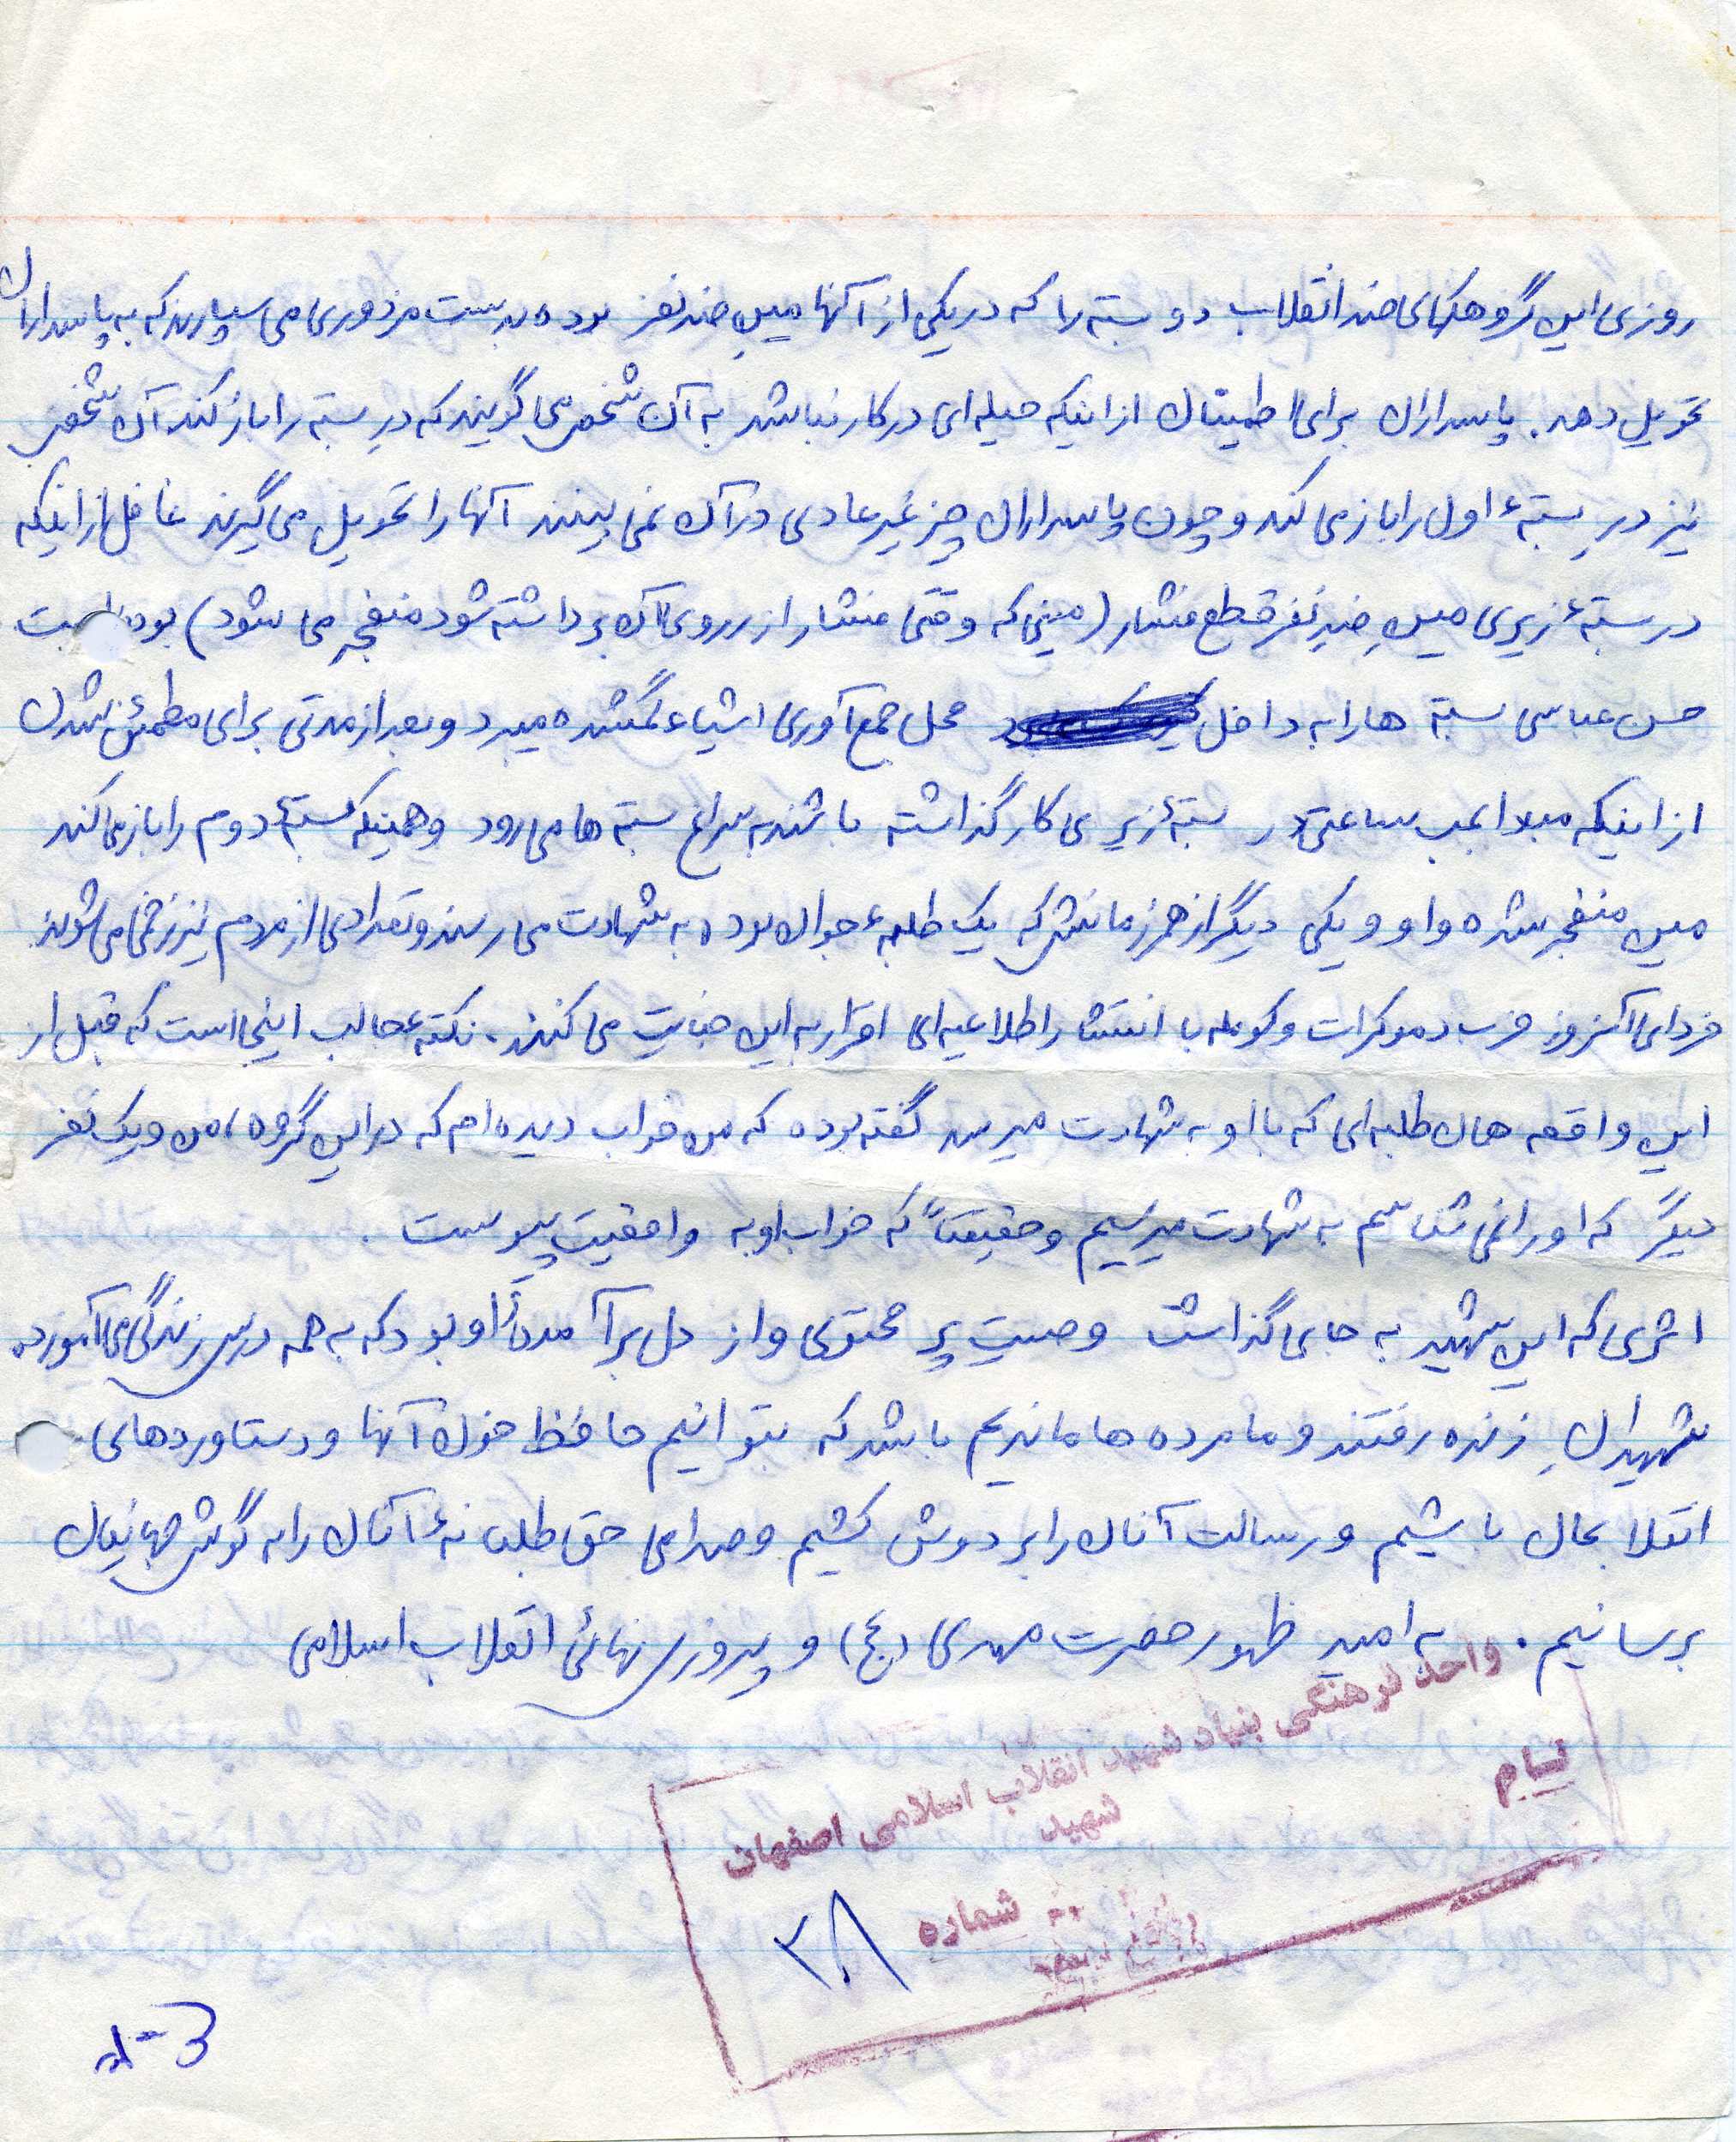 روزی این گروهکهای ضد انقلاب دو بسته را که در یکی از آنها مین ضد نفر بوده بدست مزدوری می سپارند که به پاسداران
تحویل دهد. پاسداران برای اطمینان از اینکه حیله ای در کار نباشد به آن شخص می گویند که در بسته را باز کند آن شخص
نیز در بستهٔ اول را باز می کند و چون پاسداران چیز غیر عادی در آن نمی بینند آنها را تحویل می گیرند غافل از اینکه
در بستهٔ زیری مین ضد نفر قطع فشار (مینی که وقتی فشار از روی آن برداشته شود منفجر می شود) بوده است
حسن عباسی بسته ها را به داخل محل جمع آوری اشیاء گمشده میبرد و بعد از مدتی برای مطمئن شدن
از اینکه مبدا بمب ساعتی در بستهٔ زیری کار گذاشته باشند به سراغ بسته ها می رود و همینکه بستهٔ دوم را باز می کند
مین منفجر شده و او و یکی دیگر از همرزمانش که یک طلبهٔ جوان بوده به شهادت می رسند و تعدادی از مردم نیز زخمی می شوند
فردای آنروز حزب دموکرات و کومله با انتشار اطلاعیه ای اقرار به این جنایت می کنند. نکتهٔ جالب اینجا است که قبل از
این واقعه همان طلبه ای که با او به شهادت میرسد گفته بوده که من خواب دیده ام که در این گروه، من و یک نفر
دیگر که او را نمی شناسم به شهادت میرسیم و حقیقتاً که خواب او به واقعیت پیوست .
اثری که این شهید به جای گذاشت وصیت پر محتوی و از دل برآمدهٔ او بود که به همه درس زندگی می آموزد.
شهیدان زنده رفتند و ما مرده ها ماندیم باشد که بتوانیم حافظ خون آنها و دستاوردهای
انقلابمان باشیم و رسالت آنان را بر دوش کشیم و صدای حق طلبانهٔ آنان را به گوش جهانیان
برسانیم. به امید ظهور حضرت مهدی (عج) و پیروزی نهائی انقلاب اسلامی
واحد فرهنگی بنیاد شهید انقلاب اسلامی اصفهان
پیام
شهید
شماره ۳۸